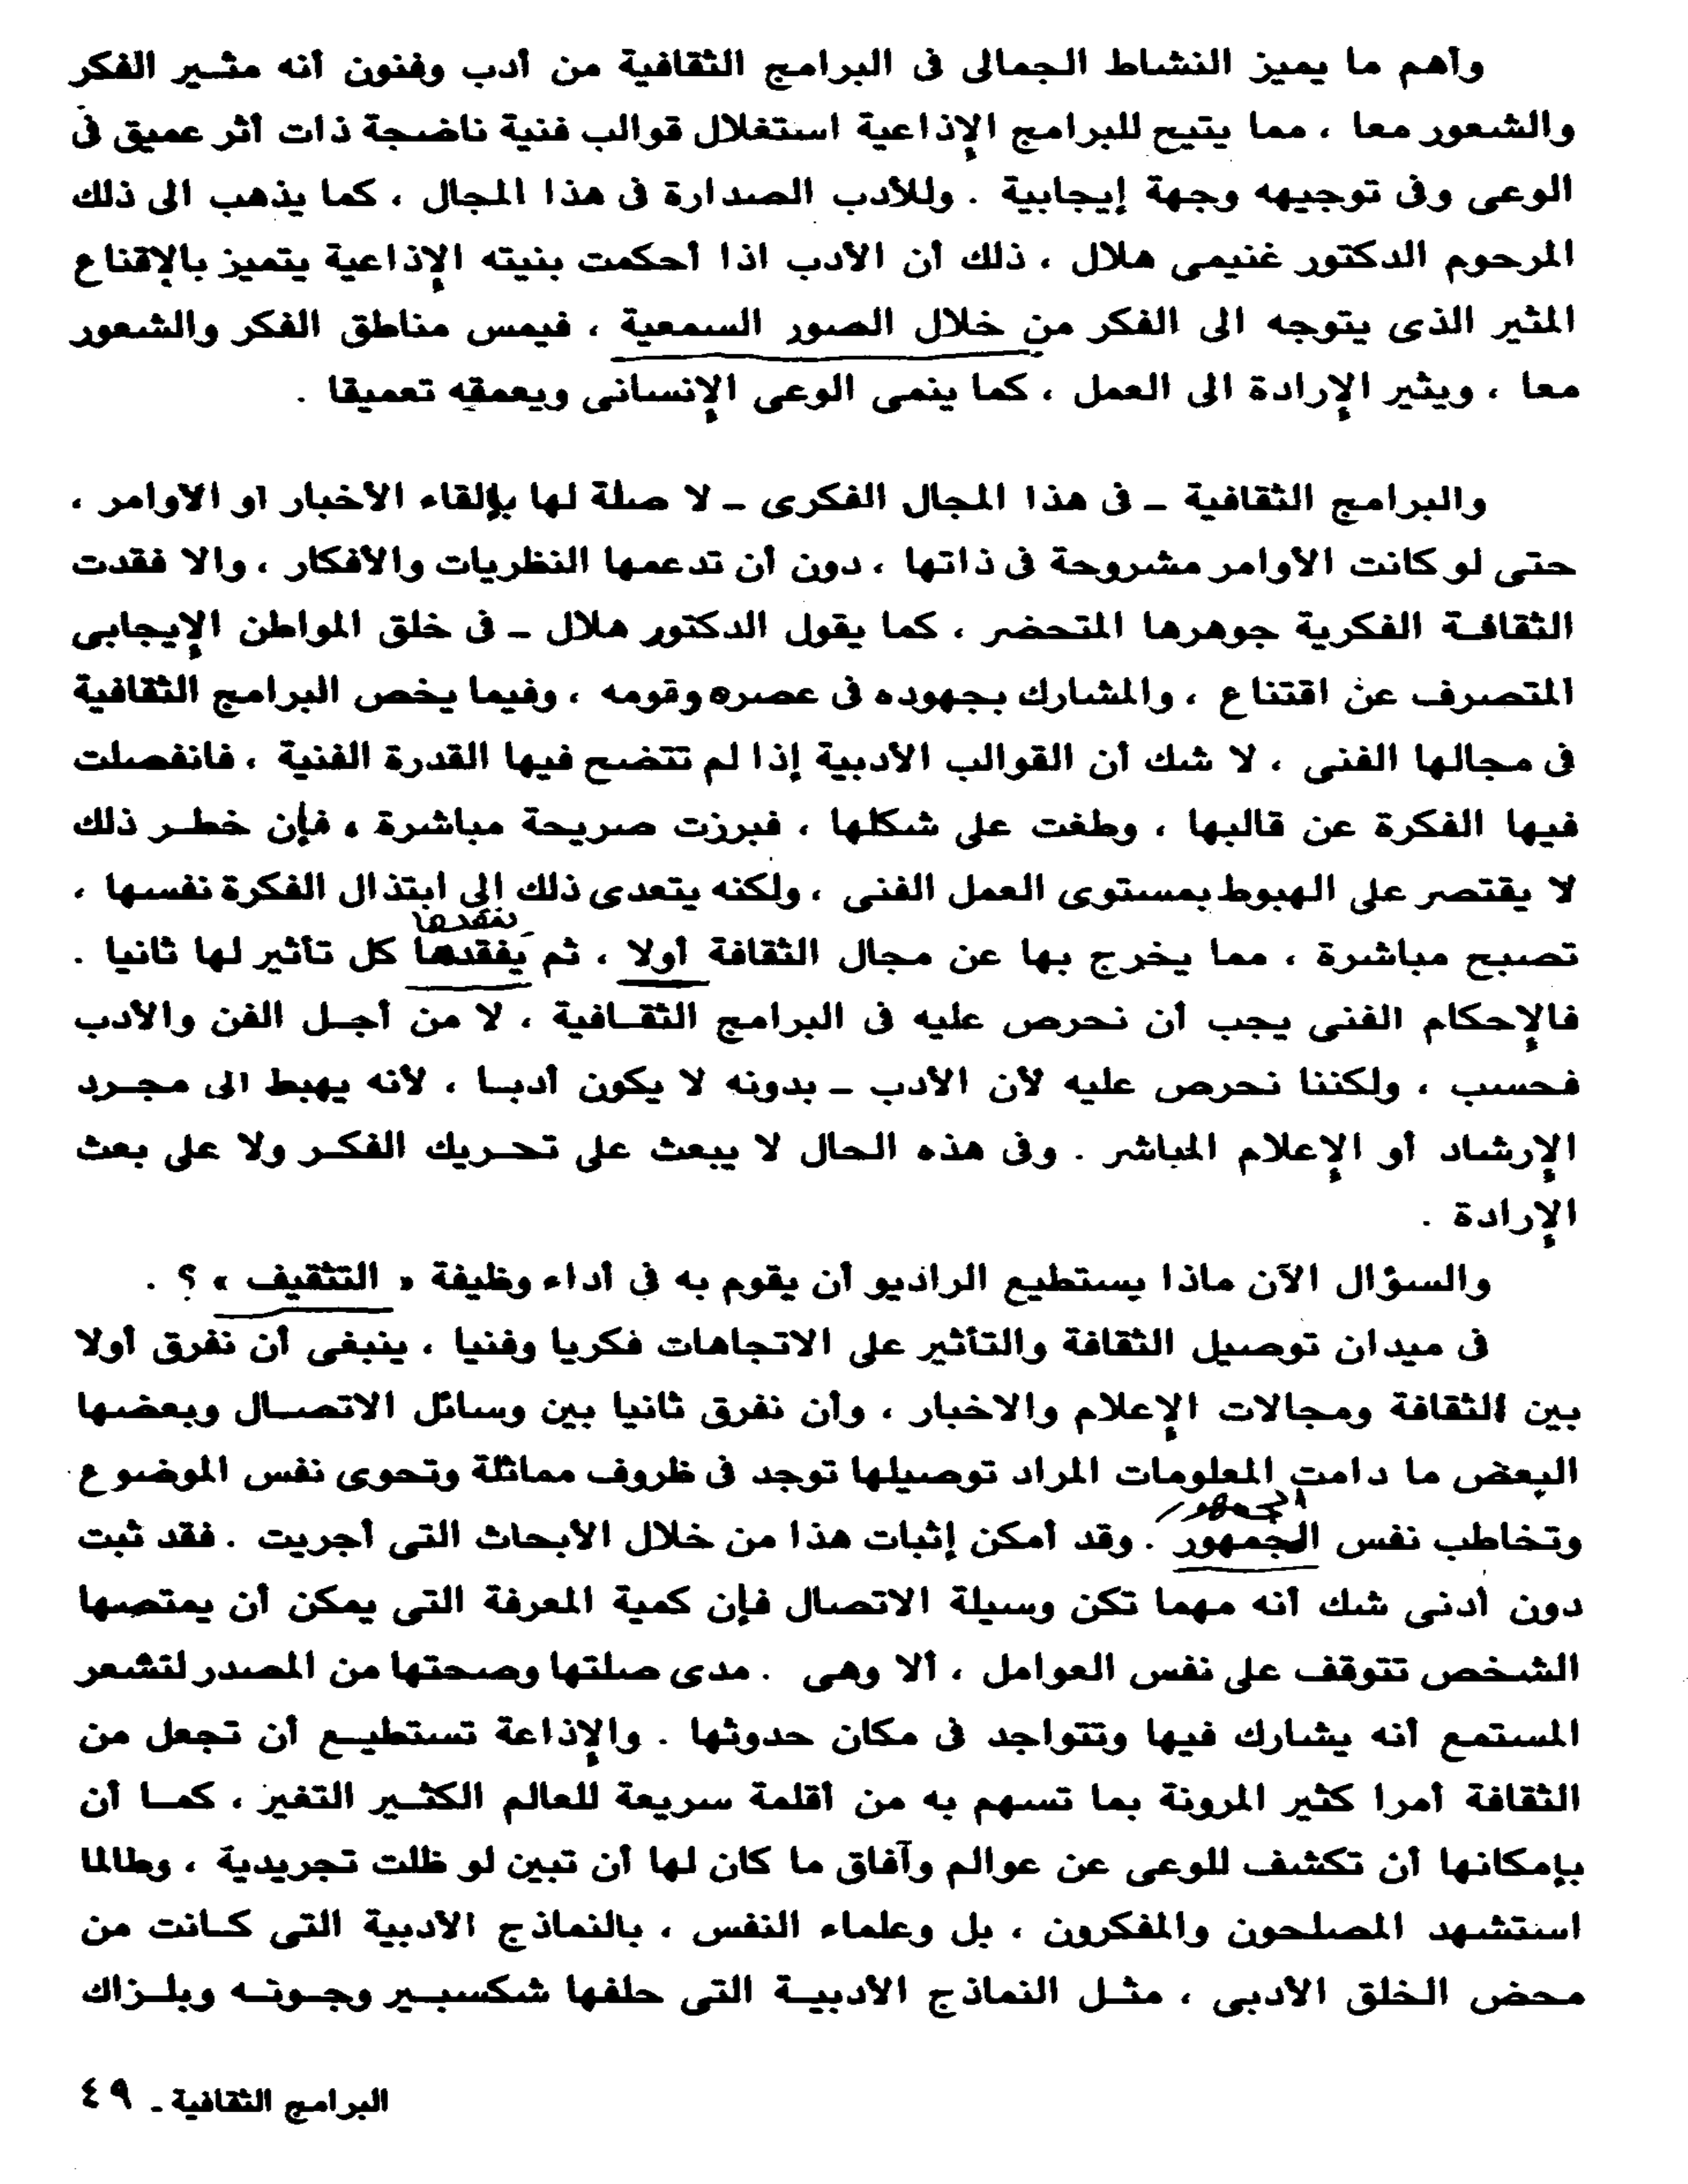 وأهم ما يميز النشاط الجمالى فى البرامج الثقافية من أدب وفنون أنه مثير الفكر
والشعور معا ، مما يتيح للبرامج الإذاعية استغلال قوالب فنية ناضجة ذات أثر عميق فى
الوعى وفى توجيهه وجهة إيجابية . وللأدب الصدارة فى هذا المجال ، كما يذهب الى ذلك
المرحوم الدكتور غنيمى هلال ، ذلك أن الأدب اذا أحكمت بنيته الإذاعية يتميز بالإقناع
المثير الذى يتوجه الى الفكر من خلال الصور السمعية ، فيمس مناطق الفكر والشعور
معا ، ويثير الإرادة الى العمل ، كما ينمى الوعى الإنسانى ويعمقه تعميقا .
والبرامج الثقافية ـ فى هذا المجال الفكرى ـ لا صلة لها بإلقاء الأخبار او الاوامر ،
حتى لو كانت الأوامر مشروحة فى ذاتها ، دون أن تدعمها النظريات والأفكار ، والا فقدت
الثقافة الفكرية جوهرها المتحضر ، كما يقول الدكتور هلال ـ فى خلق المواطن الإيجابى
المتصرف عن اقتناع ، والمشارك بجهوده فى عصره وقومه ، وفيما يخص البرامج الثقافية
فى مجالها الفنى ، لا شك أن القوالب الأدبية إذا لم تتضح فيها القدرة الفنية ، فانفصلت
فيها الفكرة عن قالبها ، وطغت على شكلها ، فبرزت صريحة مباشرة ، فإن خطر ذلك
لا يقتصر على الهبوط بمستوى العمل الفنى ، ولكنه يتعدى ذلك إلى ابتذال الفكرة نفسها ،
يفقدها
تصبح مباشرة ، مما يخرج بها عن مجال الثقافة أولا ، ثم يفقدها كل تأثير لها ثانيا .
فالإحكام الفنى يجب أن نحرص عليه فى البرامج الثقافية ، لا من أجل الفن والأدب
فحسب ، ولكننا نحرص عليه لأن الأدب ـ بدونه لا يكون أدبا ، لأنه يهبط الى مجرد
الإرشاد أو الإعلام المباشر . وفى هذه الحال لا يبعث على تحريك الفكر ولا على بعث
الإرادة .
والسؤال الآن ماذا يستطيع الراديو أن يقوم به فى أداء وظيفة « التثقيف » ؟ .
فى ميدان توصيل الثقافة والتأثير على الاتجاهات فكريا وفنيا ، ينبغى أن نفرق أولا
بين الثقافة ومجالات الإعلام والاخبار ، وأن نفرق ثانيا بين وسائل الاتصال وبعضها
البعض ما دامت المعلومات المراد توصيلها توجد فى ظروف مماثلة وتحوى نفس الموضوع
الجمهور
وتخاطب نفس الجمهور . وقد أمكن إثبات هذا من خلال الأبحاث التى أجريت . فقد ثبت
دون أدنى شك أنه مهما تكن وسيلة الاتصال فإن كمية المعرفة التى يمكن أن يمتصها
الشخص تتوقف على نفس العوامل ، ألا وهى . مدى صلتها وصحتها من المصدر لتشعر
المستمع أنه يشارك فيها وتتواجد فى مكان حدوثها . والإذاعة تستطيع أن تجعل من
الثقافة أمرا كثير المرونة بما تسهم به من أقلمة سريعة للعالم الكثير التغير ، كما أن
بإمكانها أن تكشف للوعى عن عوالم وآفاق ما كان لها أن تبين لو ظلت تجريدية ، وطالما
استشهد المصلحون والمفكرون ، بل وعلماء النفس ، بالنماذج الأدبية التى كانت من
محض الخلق الأدبى ، مثل النماذج الأدبية التى حلفها شكسبير وجوته وبلزاك
البرامج الثقافية ـ ٤٩